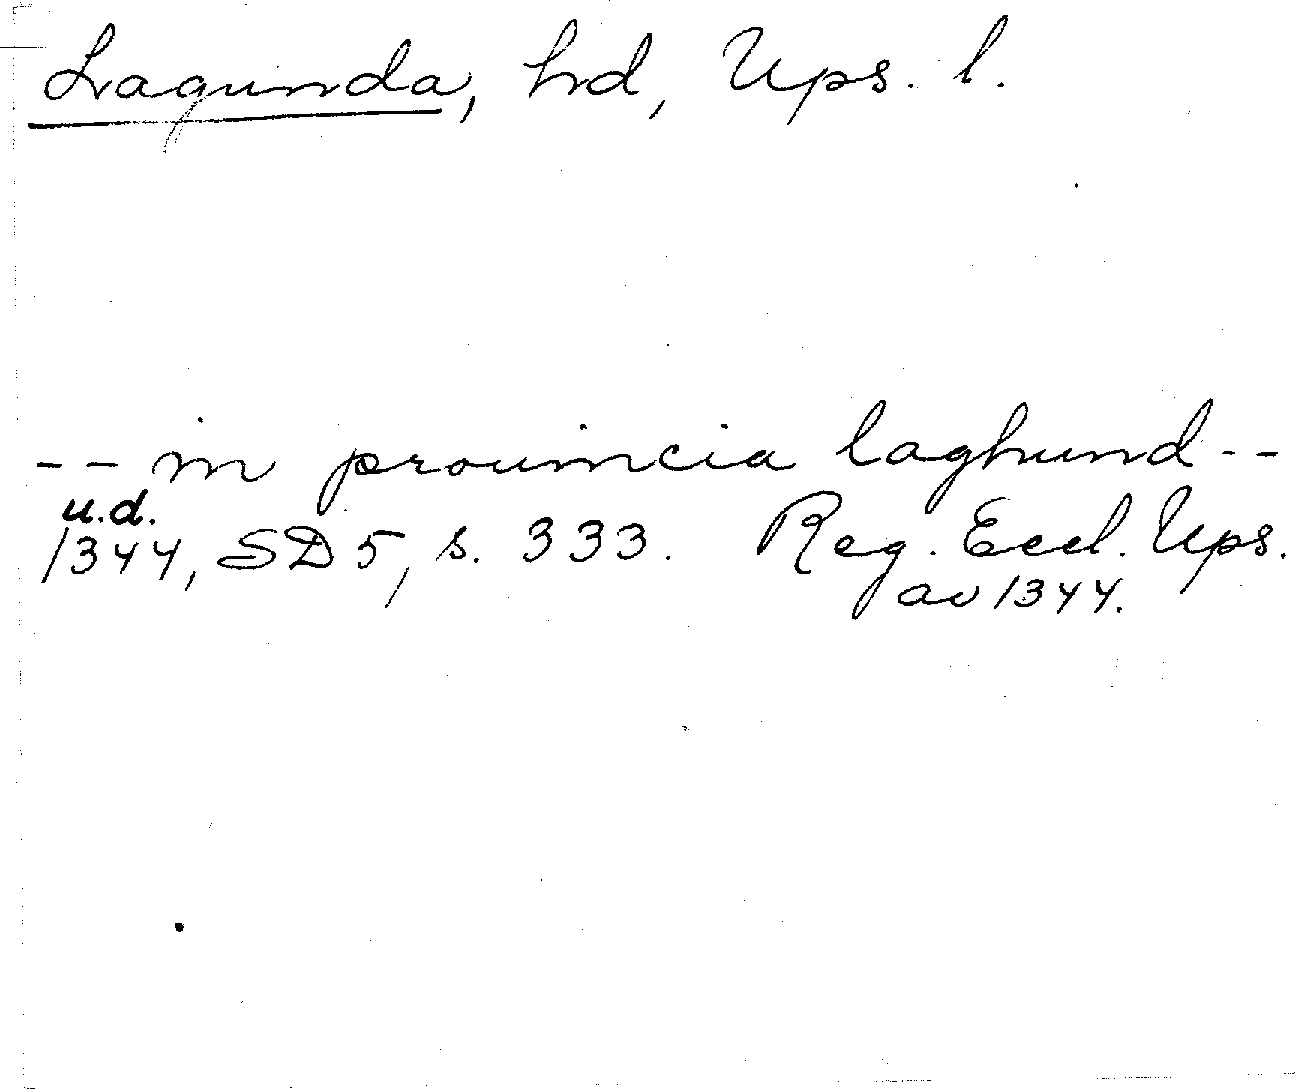 Lagunda, hd, Ups. l.
-- in prouincia laghund --
u.d.
1344, SD5, s. 333. Reg. Eccl. Ups.
av 1344.